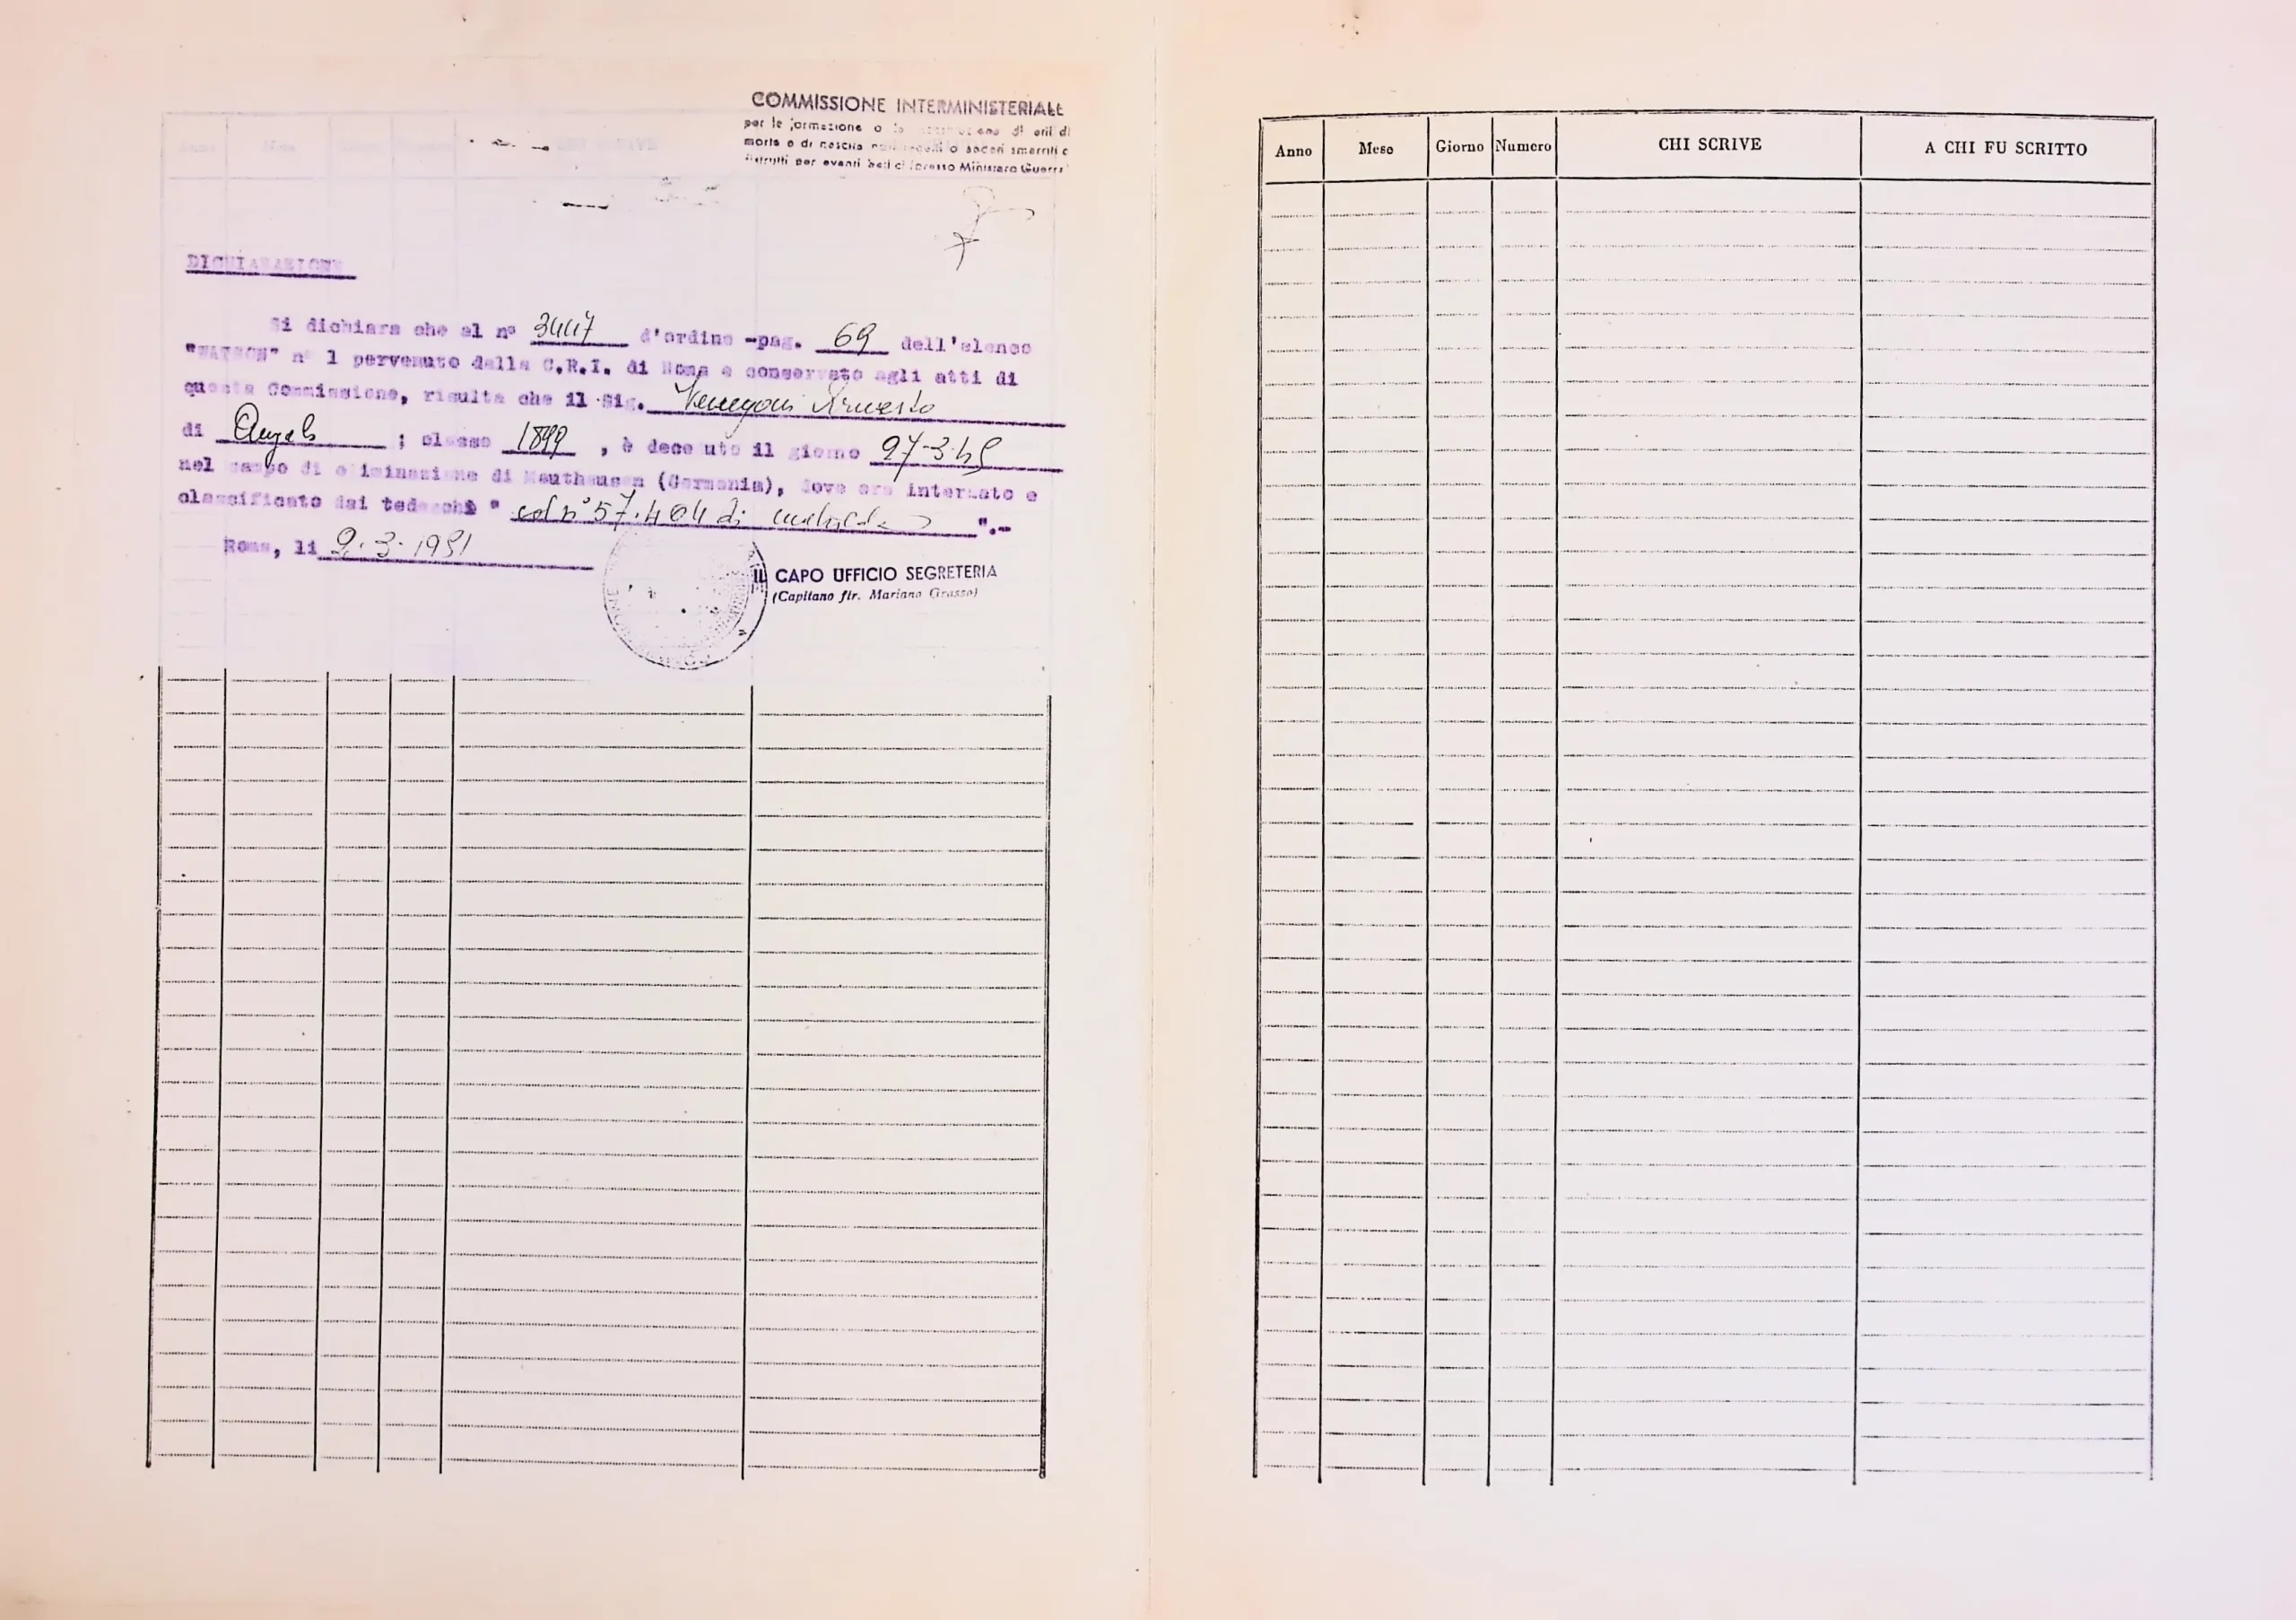 COMMISSIONE INTERMINISTERIALE
per le formazione o la di atti di
morte o di nascita non redatti o andati smarriti o
distrutti per eventi bellici (presso Ministero Guerra
DICHIARAZIONE
Si dichiara che al n° 3447 d'ordine -pag. 69 dell'elenco
"WATSON" n° 1 pervenuto dalla C.R.I. di Roma e conservato agli atti di
questa Commissione, risulta che il Sig. Venegoni Ernesto
di Angelo ; classe 1899 , è deceduto il giorno 27-3-45
nel campo di eliminazione di Mauthausen (Germania), dove era internato e
classificato dai tedeschi " col n° 57.404 di matricola ".-
Roma, li 2.3.1951
IL CAPO UFFICIO SEGRETERIA
(Capitano ftr. Mariano Grasso)
Anno Mese Giorno Numero CHI SCRIVE A CHI FU SCRITTO